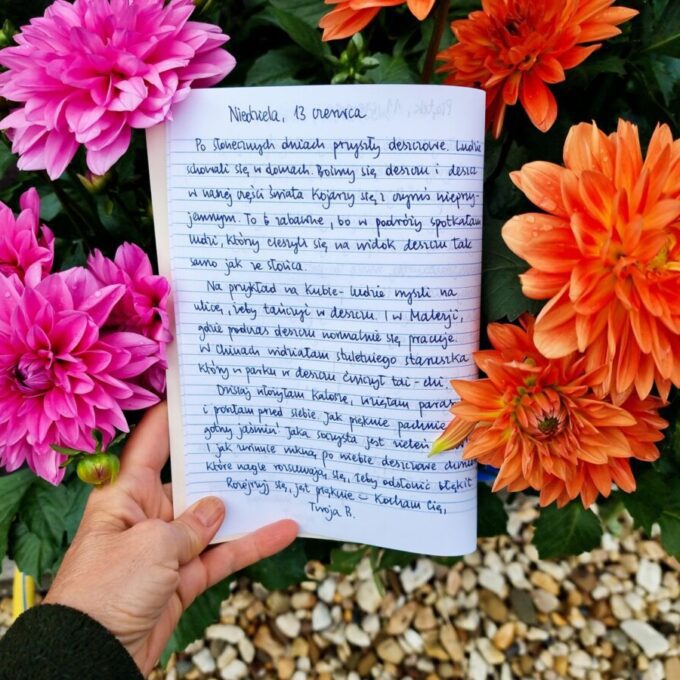 Niedziela, 13 czerwca
Po słonecznych dniach przyszły deszczowe. Ludzie
schowali się w domach. Boimy się deszczu i deszcz
w naszej części świata kojarzy się z czymś nieprzy-
jemnym. To b. zabawne, bo w podróży spotkałam
ludzi, którzy cieszyli się na widok deszczu tak
samo jak ze słońca.
Na przykład na Kubie - ludzie wyszli na
ulicę, żeby tańczyć w deszczu. I w Malezji,
gdzie podczas deszczu normalnie się pracuje.
W Chinach widziałam stuletniego staruszka
który w parku w deszczu ćwiczył tai-chi.
Dzisiaj włożyłam kalosze, wzięłam paras
i poszłam przed siebie. Jak pięknie pachnie
jaśmin! Jaka soczysta jest zieleń
I jak wspaniale suną po niebie deszczowe chmury
które nagle rozsuwają się, żeby odsłonić błękit
Rozejrzyj się, jest pięknie - Kocham Cię,
Twoja B.